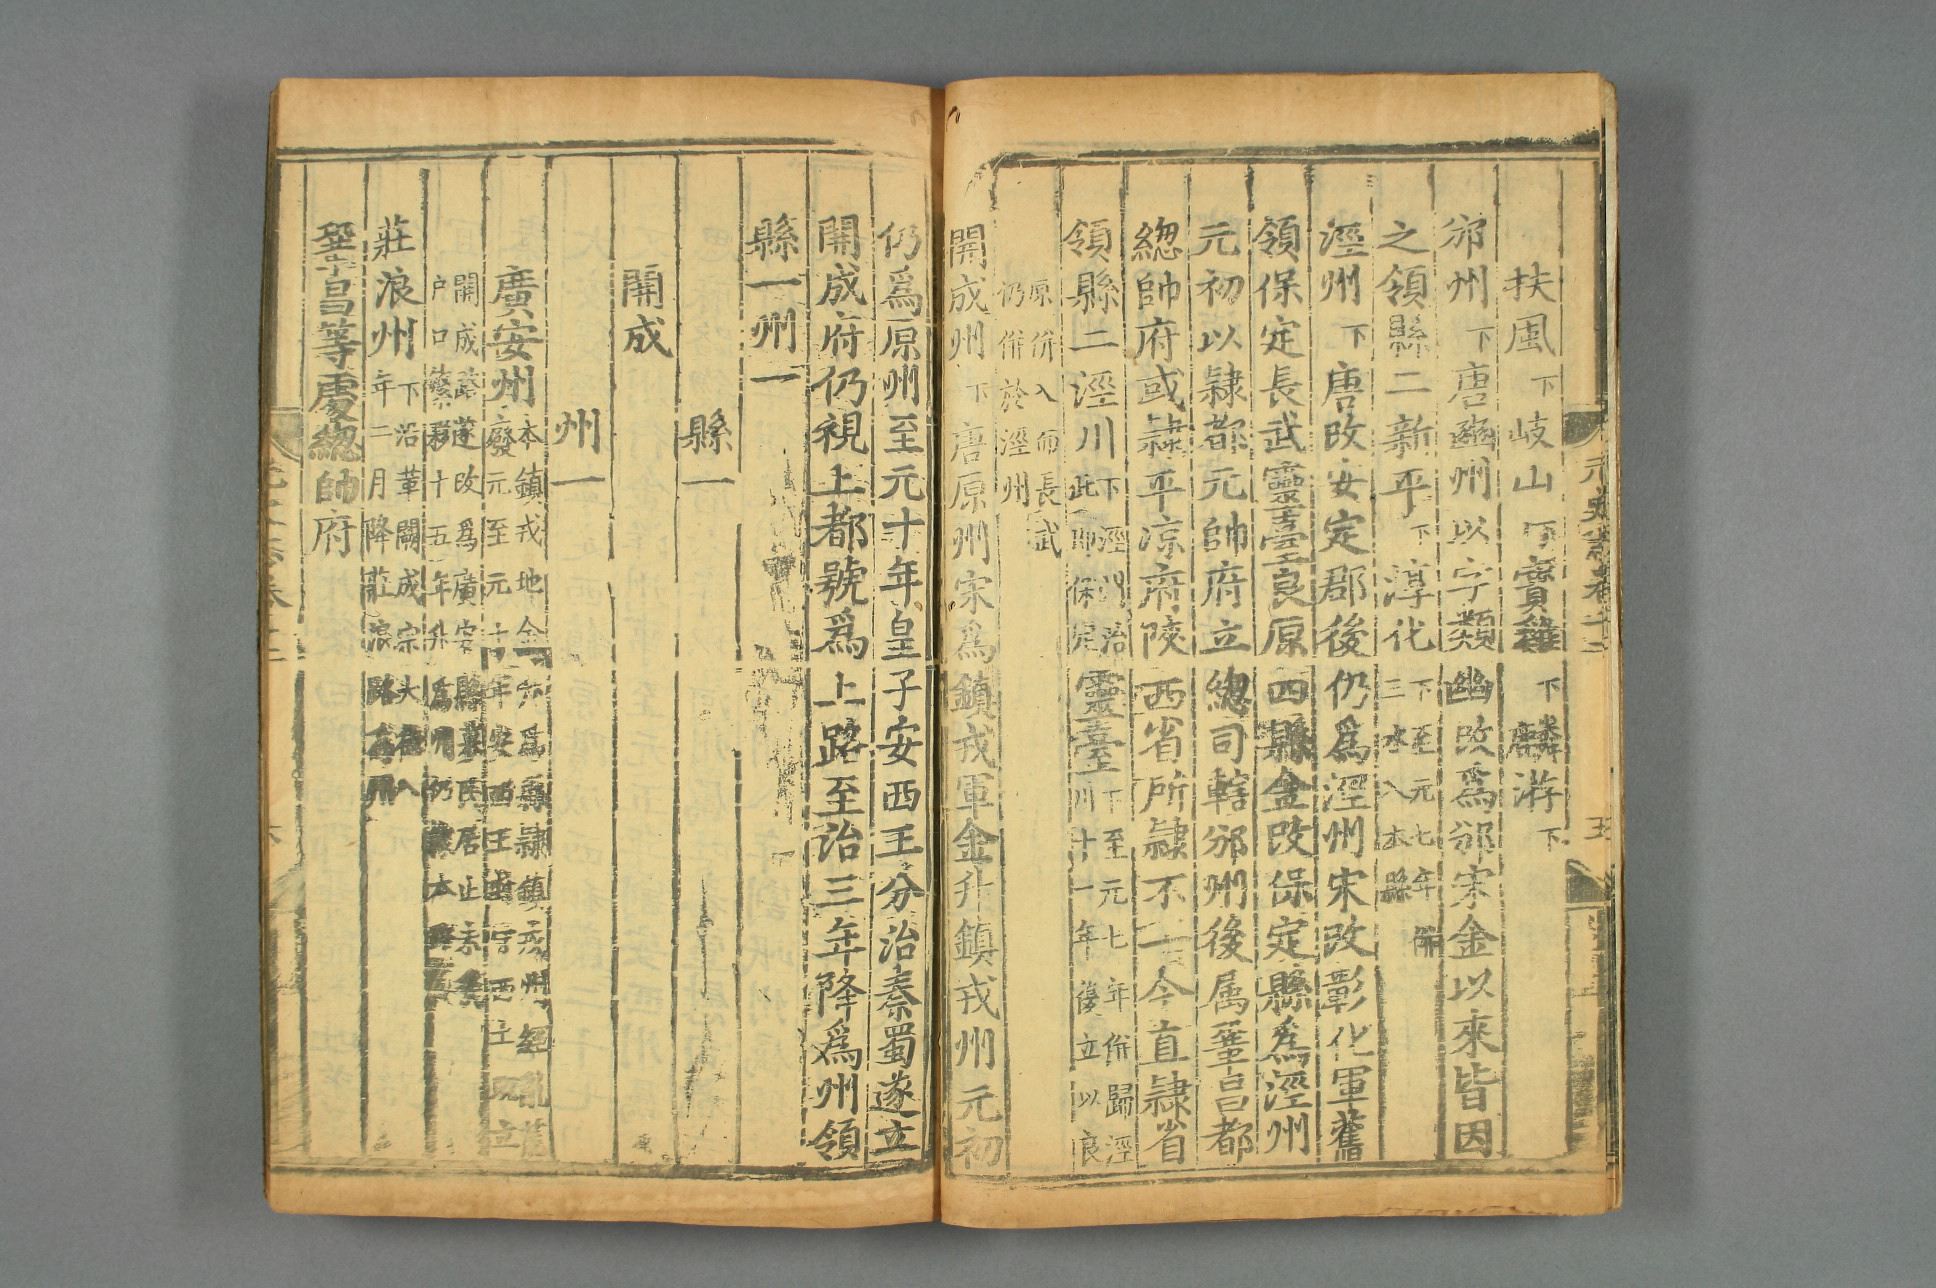 扶風下岐山下寶雞下麟游下
邠州下唐豳州以字類幽改爲邠宋金以來皆因
之領縣二新平下淳化下至元七年併
三水入本縣
涇州下唐改安定郡後仍爲涇州宋改彰化軍舊
領保定長武靈臺良原四縣金改保定縣爲涇州
元初以隸都元帥府立總司轄邠州後属鞏昌都
總帥府或隸平凉府陝西省所隸不一今直隸省
領縣二涇川下涇州治
此即保定靈臺下至元七年併歸涇
川十一年復立以良
原併入而長武
仍併於涇州
開成州下唐原州宋爲鎮戎軍金升鎮戎州元初
仍爲原州至元十年皇子安西王分治秦蜀遂立
開成府仍視上都號爲上路至治三年降爲州領
縣一州一
縣一
開成
州一
廣安州本鎮戎地金升爲縣隸鎮戎州經亂荒
廢元至元十年安西王封守西土既立
開成路遂改爲廣安縣募民居止未幾
户口繁夥十五年升爲州仍隸本路
莊浪州下沿革闕成宗大德八
年二月降莊浪路爲州
鞏昌等處總帥府